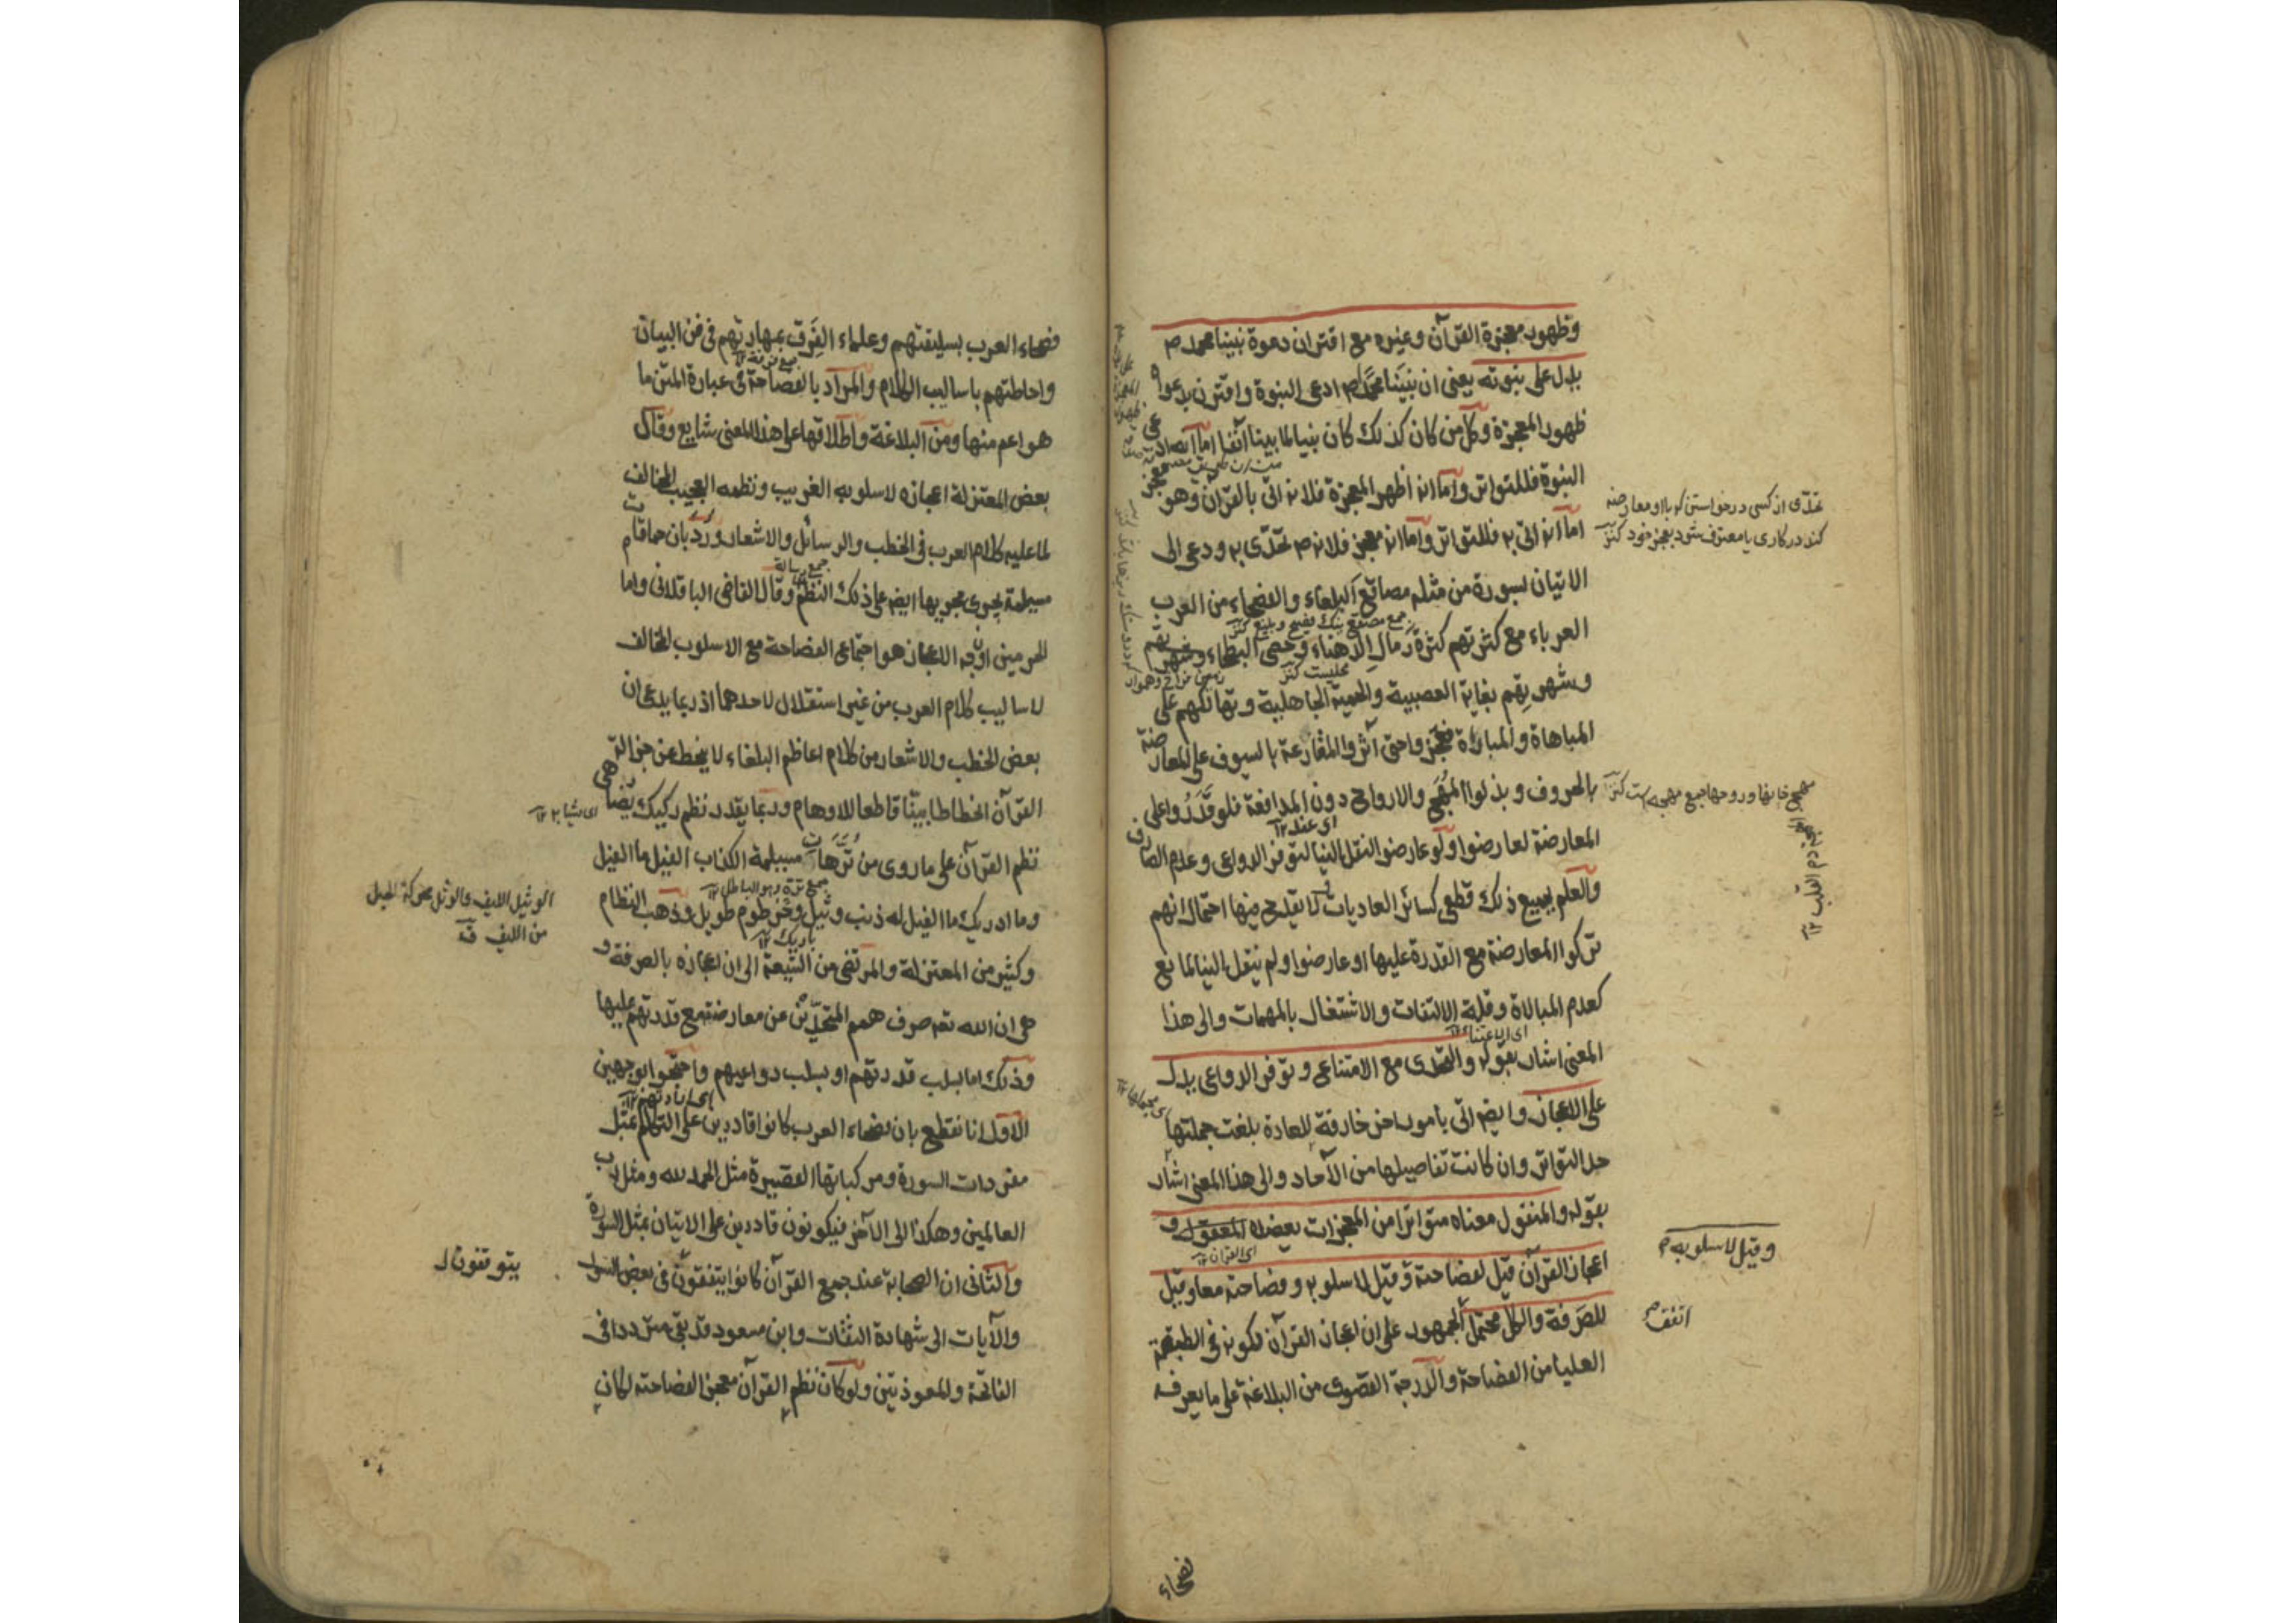 وظهور معجزة القرآن وغيره مع اقتران دعوة نبينا محمد م
يدل على نبوته يعنى ان نبينا محمدا م ادعى النبوة واقترن بدعواه
ظهور المعجزة وكل من كان كذلك كان نبيا لما بينا آنفا اما انه ادعى
النبوة فللتواتر واما انه اظهر المعجزة فلانه اتى بالقرآن وهو معجز
اما انه اتى به فللتواتر واما انه معجز فلانه م تحدى به ودعى الى
الاتيان بسورة من مثله مصاقع البلغاء والفصحاء من العرب
جمع مصقع
العرباء مع كثرتهم كثرة رمال الدهناء وحصى البطحاء
وشهرتهم بغاية العصبية والحمية الجاهلية وتهالكهم على
المباهاة والمباراة فعجزوا حتى آثروا المقارعة بالسيوف على المعارضة
بالحروف وبذلوا المهج والارواح دون المدافعة فلو قدروا على
اى عند ١٢
المعارضة لعارضوا ولو عارضوا لنقل الينا لتوفر الدواعى وعدم الصارف
والعلم بجميع ذلك قطعى كسائر العاديات لا يقدح فيها احتمال انهم
تركوا المعارضة مع القدرة عليها او عارضوا ولم ينقل الينا لمانع
كعدم المبالاة وقلة الالتفات والاشتغال بالمهمات والى هذا
المعنى اشار بقوله والتحدى مع الامتناع وتوفر الدواعى يدل
على الاعجاز وايضه اتى بامور اخر خارقة للعادة بلغت جملتها
حد التواتر وان كانت تفاصيلها من الآحاد والى هذا المعنى اشار
بقوله والمنقول معناه متواترا من المعجزات يعضده
اى القرآن ١٢
اعجاز القرآن قيل لفصاحته وقيل لاسلوبه وفصاحته معا وقيل
للصرفة والكل محتمل الجمهور على ان اعجاز القرآن لكونه فى الطبقة
العليا من الفصاحة والدرجة القصوى من البلاغة على ما يعرفه
تحدى از كسى درخواستن كه با او معارضه
كند در كارى يا معترف شود بعجز خود كنز
وقيل لاسلوبه م
اتفق م
فصحاء
فصحاء العرب بسليقتهم وعلماء الفرق بمهارتهم فى فن البيان
واحاطتهم باساليب الكلام والمراد بالفصاحة فى عبارة المتن ما
هو اعم منها ومن البلاغة واطلاقها على هذا المعنى شايع وقال
بعض المعتزلة اعجازه لاسلوبه الغريب ونظمه العجيب المخالف
لما عليه كلام العرب فى الخطب والرسائل والاشعار ورد بان حماقات
جمع رسالة
مسيلمة يجرى مجريها ايضه على ذلك النظم وقال القاضى الباقلانى واما
الحرمين ان وجه الاعجاز هو اجتماع الفصاحة مع الاسلوب المخالف
لاساليب كلام العرب من غير استقلال لاحدهما اذ ربما يدعى ان
بعض الخطب والاشعار من كلام اعاظم البلغاء لا ينحط عن جزالة
القرآن انحطاطا بينا قاطعا للاوهام وربما يقدر نظم ركيك يضاهى
نظم القرآن على ما روى من ترهات مسيلمة الكذاب الفيل ما الفيل
جمع ترهة وهو الباطل ١٢
وما ادريك ما الفيل له ذنب وثيل وخرطوم طويل وذهب النظام
وكثير من المعتزلة والمرتضى من الشيعة الى ان اعجازه بالصرفة و
هى ان الله تعه صرف همم المتحدين عن معارضته مع قدرتهم عليها
وذلك اما بسلب قدرتهم او بسلب دواعيهم واحتجوا بوجهين
الاول انا نقطع بان فصحاء العرب كانوا قادرين على التكلم بمثل
مفردات السورة ومركباتها القصيرة مثل الحمد لله ومثل رب
العالمين وهكذا الى الآخر فيكونون قادرين على الاتيان بمثل السورة
والثانى ان الصحابة عند جمع القرآن كانوا يتفقون فى بعض السور
والآيات الى شهادة الثقات وابن مسعود قد بقى مترددا فى
الفاتحة والمعوذتين ولو كان نظم القرآن معجزا لفصاحته لكان
الوثيل الليف والوثل محركة الحبل
من الليف ق
يتوقفون ل